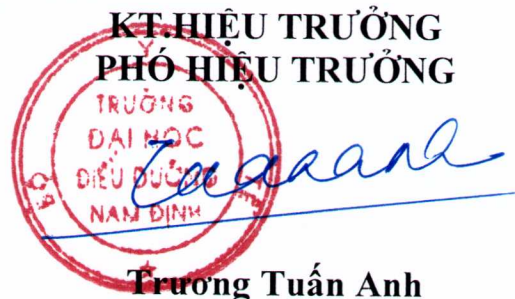 KT.HIỆU TRƯỞNG
PHÓ HIỆU TRƯỞNG
TRƯỜNG
ĐẠI HỌC
ĐIỀU DƯỠNG
NAM ĐỊNH
BỘ Y TẾ
Trương Tuấn Anh